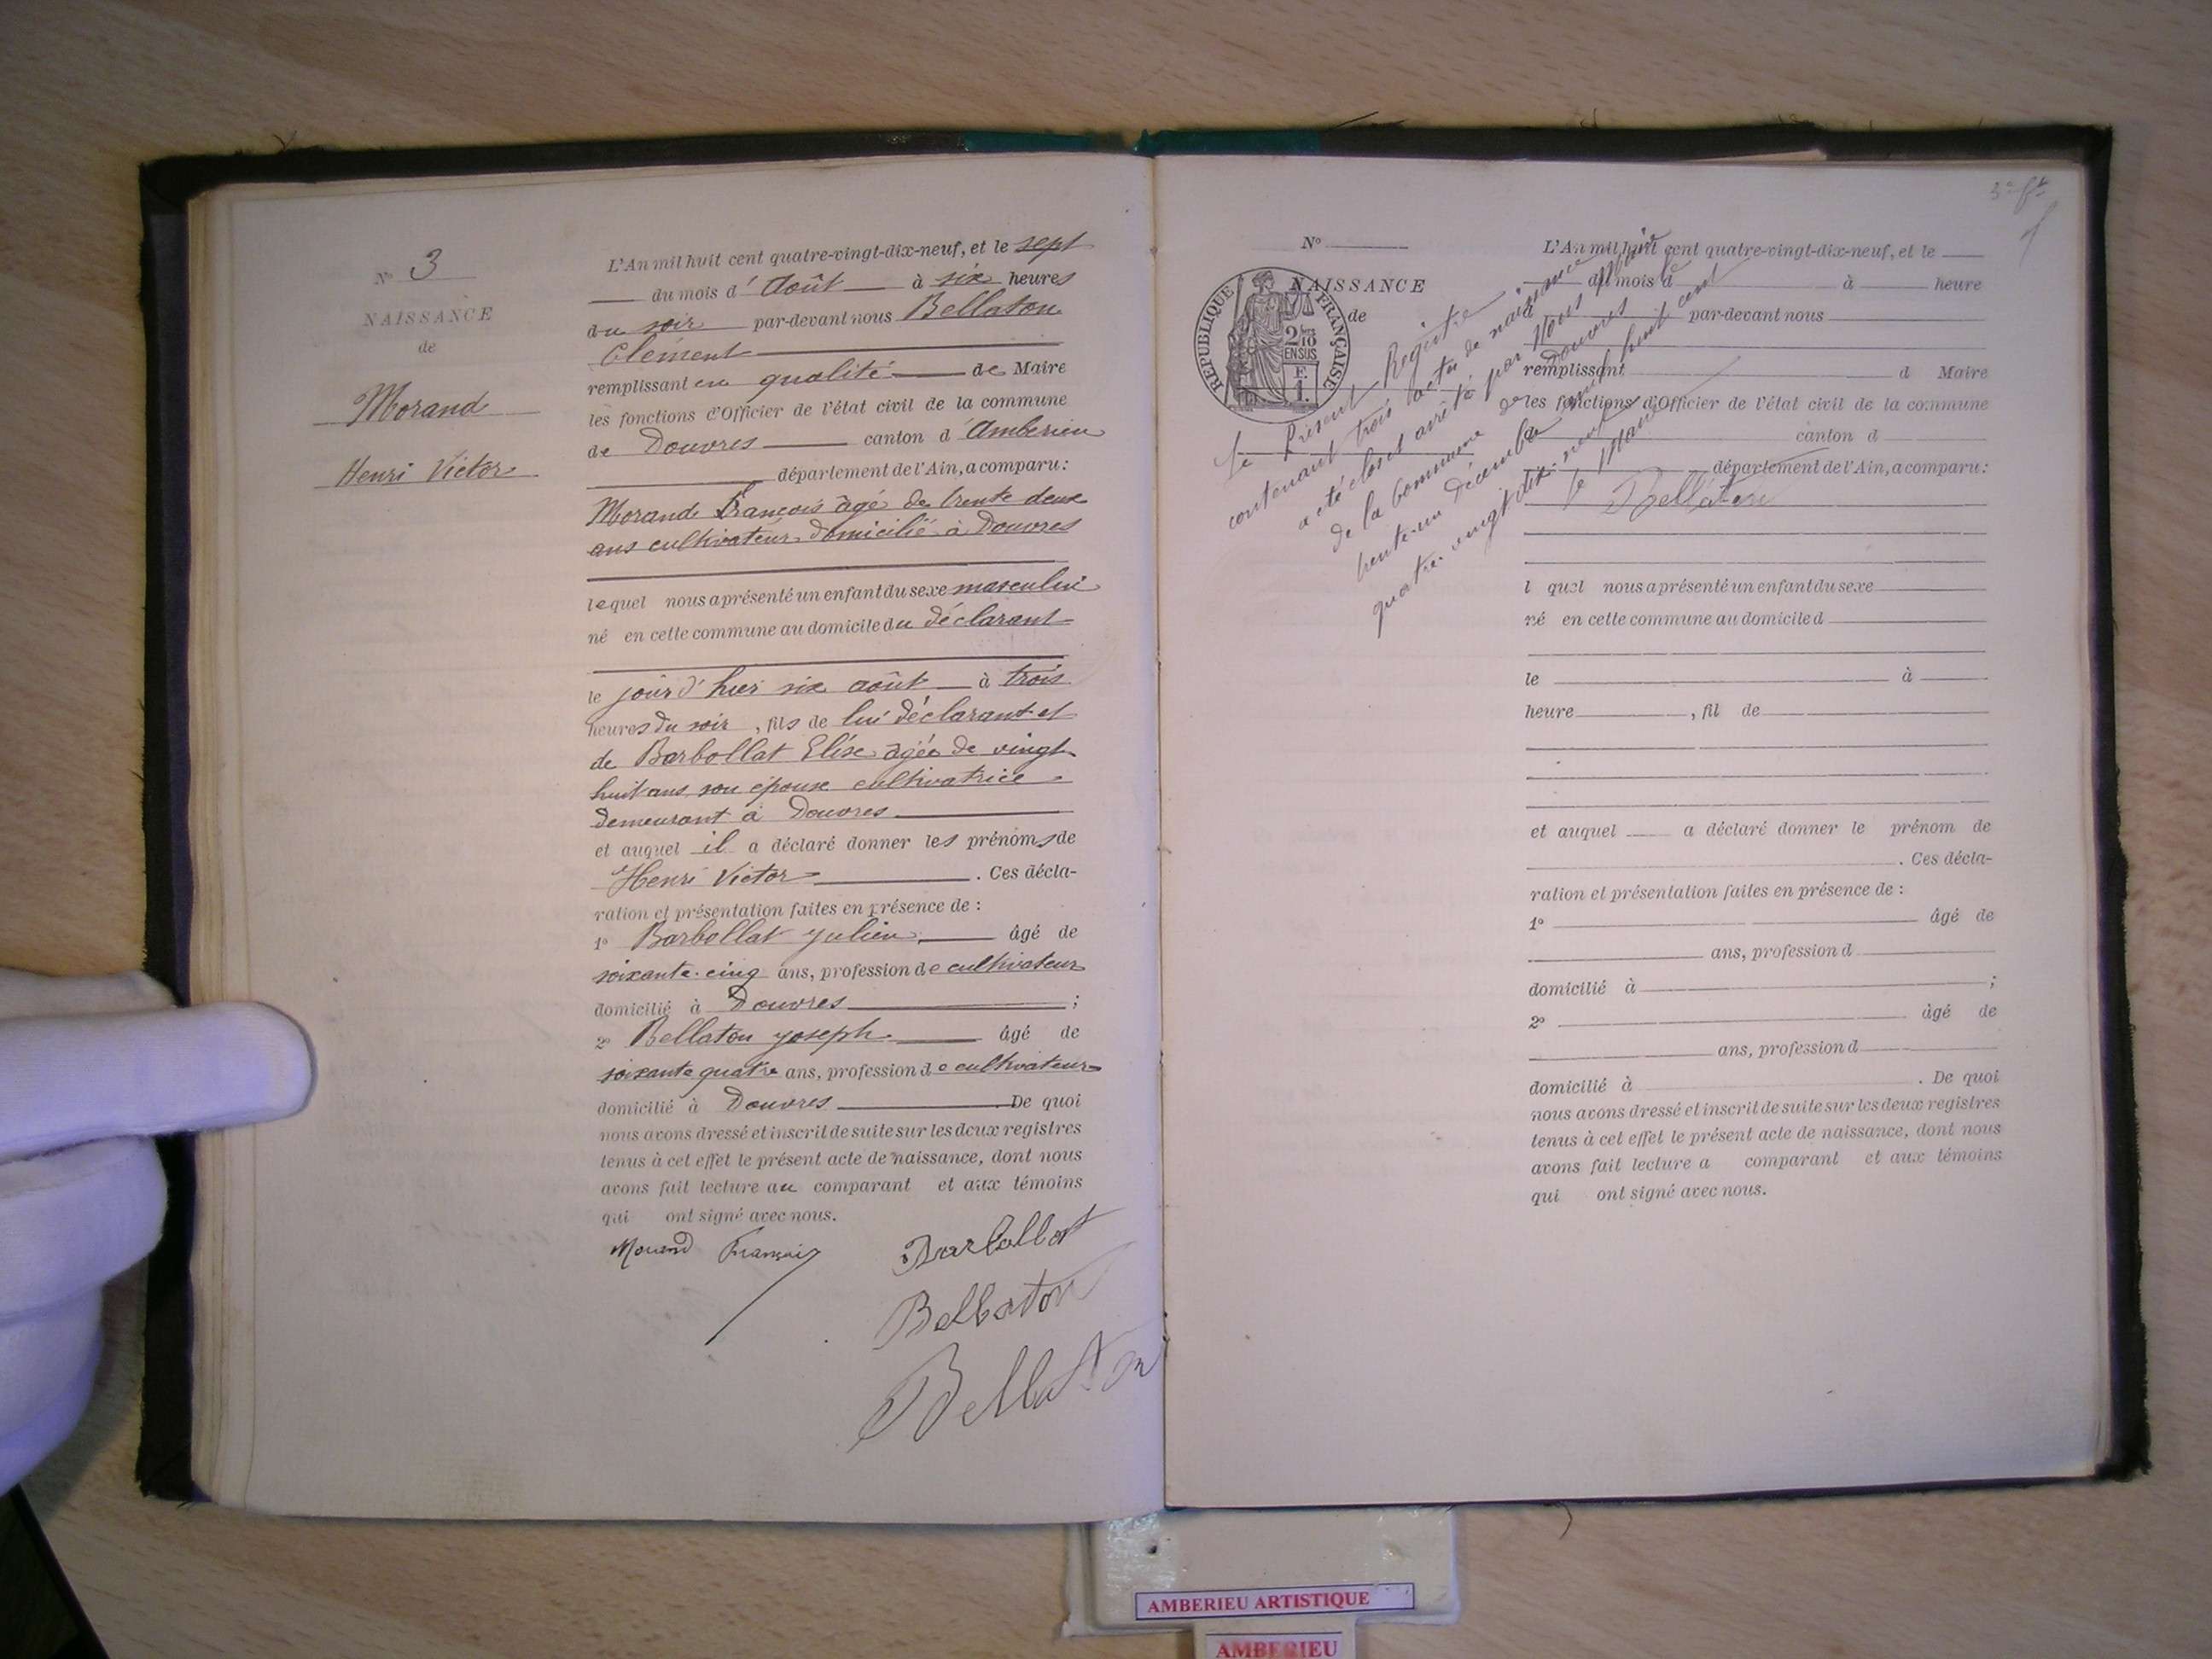 Nº 3
NAISSANCE
de
Morand
Henri Victor
L'An mil huit cent quatre-vingt-dix-neuf, et le sept
du mois d' Août à six heures
du soir par-devant nous Bellaton
Clément
remplissant en qualité de Maire
les fonctions d'Officier de l'état civil de la commune
de Douvres canton d'Ambérieu
département de l'Ain, a comparu :
Morand François âgé de trente deux
ans cultivateur domicilié à Douvres
lequel nous a présenté un enfant du sexe masculin
né en cette commune au domicile du déclarant
le jour d'hier six août à trois
heures du soir, fils de lui déclarant et
de Barbollat Elise âgée de vingt
huit ans son épouse cultivatrice
demeurant à Douvres
et auquel il a déclaré donner les prénoms de
Henri Victor . Ces décla-
ration et présentation faites en présence de :
1º Barbollat Julien âgé de
soixante-cinq ans, profession de cultivateur
domicilié à Douvres ;
2º Bellaton Joseph âgé de
soixante quatre ans, profession de cultivateur
domicilié à Douvres De quoi
nous avons dressé et inscrit de suite sur les deux registres
tenus à cet effet le présent acte de naissance, dont nous
avons fait lecture au comparant et aux témoins
qui ont signé avec nous.
Morand François
Barbollat
Bellaton
Bellaton
3e ft
Nº
NAISSANCE
de
REPUBLIQUE FRANÇAISE
2/10
EN SUS
F.
1.
Le Présent Registre
contenant trois actes de naissance
a été clos et arrêté par Nous Maire
de la Commune de Douvres
trente-un Décembre mil huit cent
quatre-vingt-dix-neuf
Le Maire
Bellaton
L'An mil huit cent quatre-vingt-dix-neuf, et le
du mois d à heure
par-devant nous
remplissant d Maire
les fonctions d'Officier de l'état civil de la commune
d canton d
département de l'Ain, a comparu :
l quel nous a présenté un enfant du sexe
né en cette commune au domicile d
le à
heure , fil de
et auquel a déclaré donner le prénom de
. Ces décla-
ration et présentation faites en présence de :
1º âgé de
ans, profession d
domicilié à ;
2º âgé de
ans, profession d
domicilié à . De quoi
nous avons dressé et inscrit de suite sur les deux registres
tenus à cet effet le présent acte de naissance, dont nous
avons fait lecture a comparant et aux témoins
qui ont signé avec nous.
AMBERIEU ARTISTIQUE
AMBERIEU